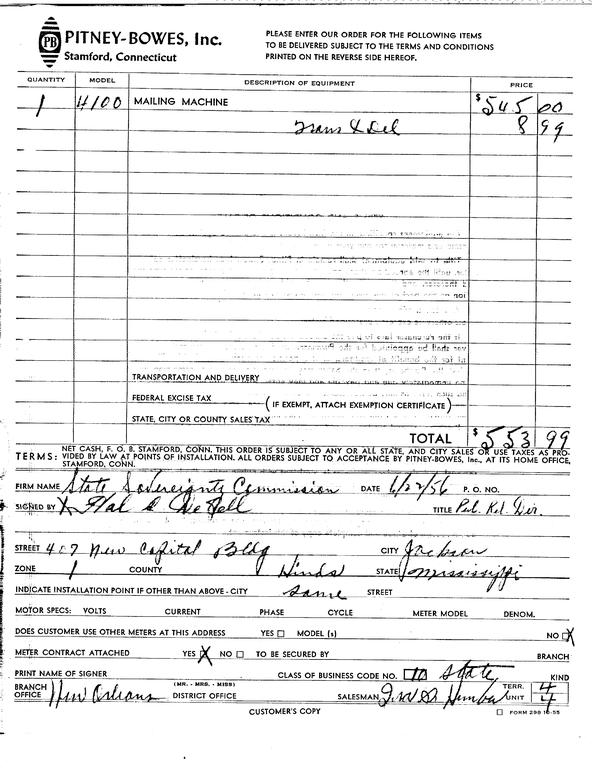 PB PITNEY-BOWES, Inc.
Stamford, Connecticut
PLEASE ENTER OUR ORDER FOR THE FOLLOWING ITEMS
TO BE DELIVERED SUBJECT TO THE TERMS AND CONDITIONS
PRINTED ON THE REVERSE SIDE HEREOF.
QUANTITY MODEL DESCRIPTION OF EQUIPMENT PRICE
1 4100 MAILING MACHINE $545 00
Trans & Del 8 99
TRANSPORTATION AND DELIVERY
FEDERAL EXCISE TAX (IF EXEMPT, ATTACH EXEMPTION CERTIFICATE)
STATE, CITY OR COUNTY SALES TAX
TOTAL $553 99
TERMS: NET CASH, F. O. B. STAMFORD, CONN. THIS ORDER IS SUBJECT TO ANY OR ALL STATE, AND CITY SALES OR USE TAXES AS PRO-
VIDED BY LAW AT POINTS OF INSTALLATION. ALL ORDERS SUBJECT TO ACCEPTANCE BY PITNEY-BOWES, Inc., AT ITS HOME OFFICE,
STAMFORD, CONN.
FIRM NAME State Sovereignty Commission DATE 6/22/56 P. O. NO.
SIGNED BY X Hal C DeCell TITLE Pub. Rel. Dir.
STREET 407 New Capitol Bldg CITY Jackson
ZONE 1 COUNTY Hinds STATE Mississippi
INDICATE INSTALLATION POINT IF OTHER THAN ABOVE - CITY same STREET
MOTOR SPECS: VOLTS CURRENT PHASE CYCLE METER MODEL DENOM.
DOES CUSTOMER USE OTHER METERS AT THIS ADDRESS YES □ MODEL (s) NO X
METER CONTRACT ATTACHED YES X NO □ TO BE SECURED BY BRANCH
PRINT NAME OF SIGNER (MR. - MRS. - MISS) CLASS OF BUSINESS CODE NO. 10 State KIND
BRANCH OFFICE New Orleans DISTRICT OFFICE SALESMAN TERR. 4
UNIT 4
CUSTOMER'S COPY □ FORM 298 10-55